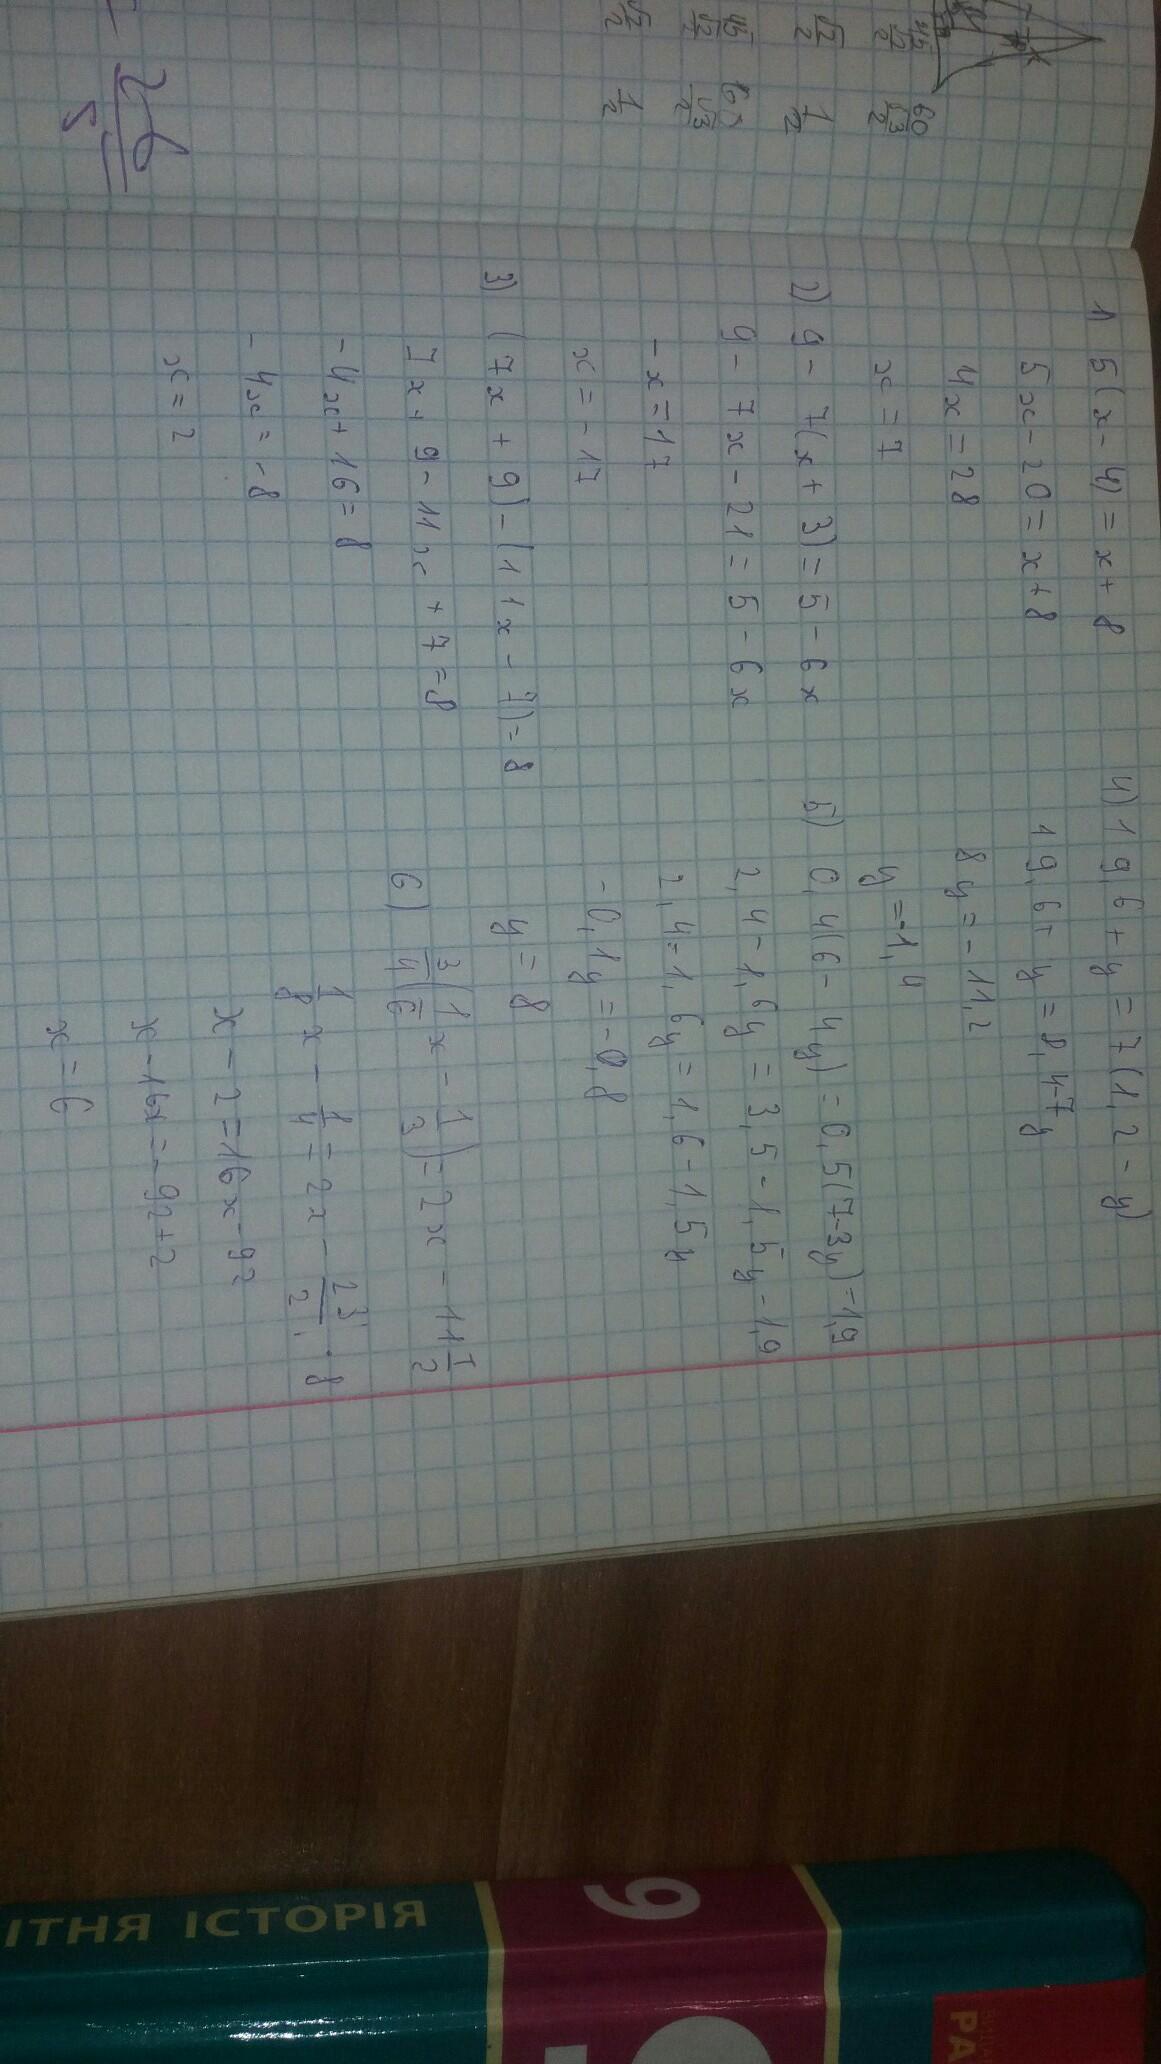 45 60
√2/2 √3/2
√2/2 1/2
45 60
√2/2 √3/2
√2/2 1/2
1) 5(x-4)=x+8
5x-20=x+8
4x=28
x=7
2) 9-7(x+3)=5-6x
9-7x-21=5-6x
-x=17
x=-17
3) (7x+9)-(11x-7)=8
7x+9-11x+7=8
-4x+16=8
-4x=-8
x=2
4) 19,6+y=7(1,2-y)
19,6+y=8,4-7y
8y=-11,2
y=-1,4
5) 0,4(6-4y)=0,5(7-3y)=1,9
2,4-1,6y=3,5-1,5y-1,9
2,4=1,6y=1,6-1,5y
-0,1y=-0,8
y=8
6) 3/4(1/6x-1/3)=2x-11 1/2
1/8x-1/4=2x-23/2 |·8
x-2=16x-92
x-16x=-92+2
x=6
ІТНЯ ІСТОРІЯ
9
РА